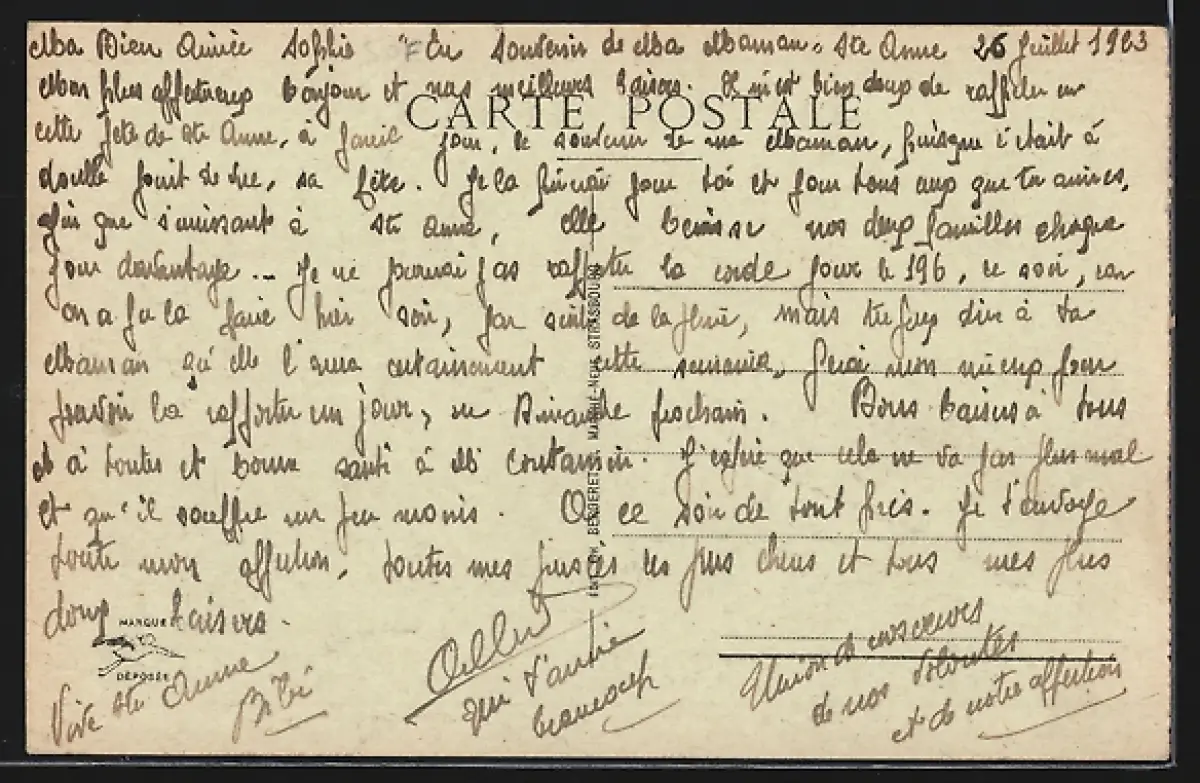 Ma Bien Aimée Sophie "En souvenir de Ma Maman. Ste Anne 26 Juillet 1923
Mon plus affectueux bonjour et nos meilleurs baisers. Il m'est bien doux de rappeler en
CARTE POSTALE
cette fête de Ste Anne, à jour, le souvenir de ma Maman, puisque c'était à
de sa fête. Je la pour toi et pour tous ceux que tu aimes,
que s'unissant à Ste Anne, elle bénisse nos deux familles chaque
jour davantage... Je ne pourrai pas rapporter la corde pour le 196, ce soir, car
on a pu la hier soir, par de la pluie, mais tu peux dire à ta
Maman qu'elle l'aura certainement cette semaine, mon mieux pour
pouvoir la rapporter un jour, ou Dimanche prochain. Bons baisers à tous
et à toutes et bonne santé à J'espère que cela ne va pas plus mal
et qu'il souffre un peu moins. A ce soir de tout près. Je t'envoye
toute mon affection, toutes mes pensées les plus chères et tous mes plus
doux baisers.
MARQUE
DÉPOSÉE
Vive Ste Anne
Bibi
qui t'aime
beaucoup
Union de nos cœurs
de nos volontés
et de notre affection
STRASBOURG